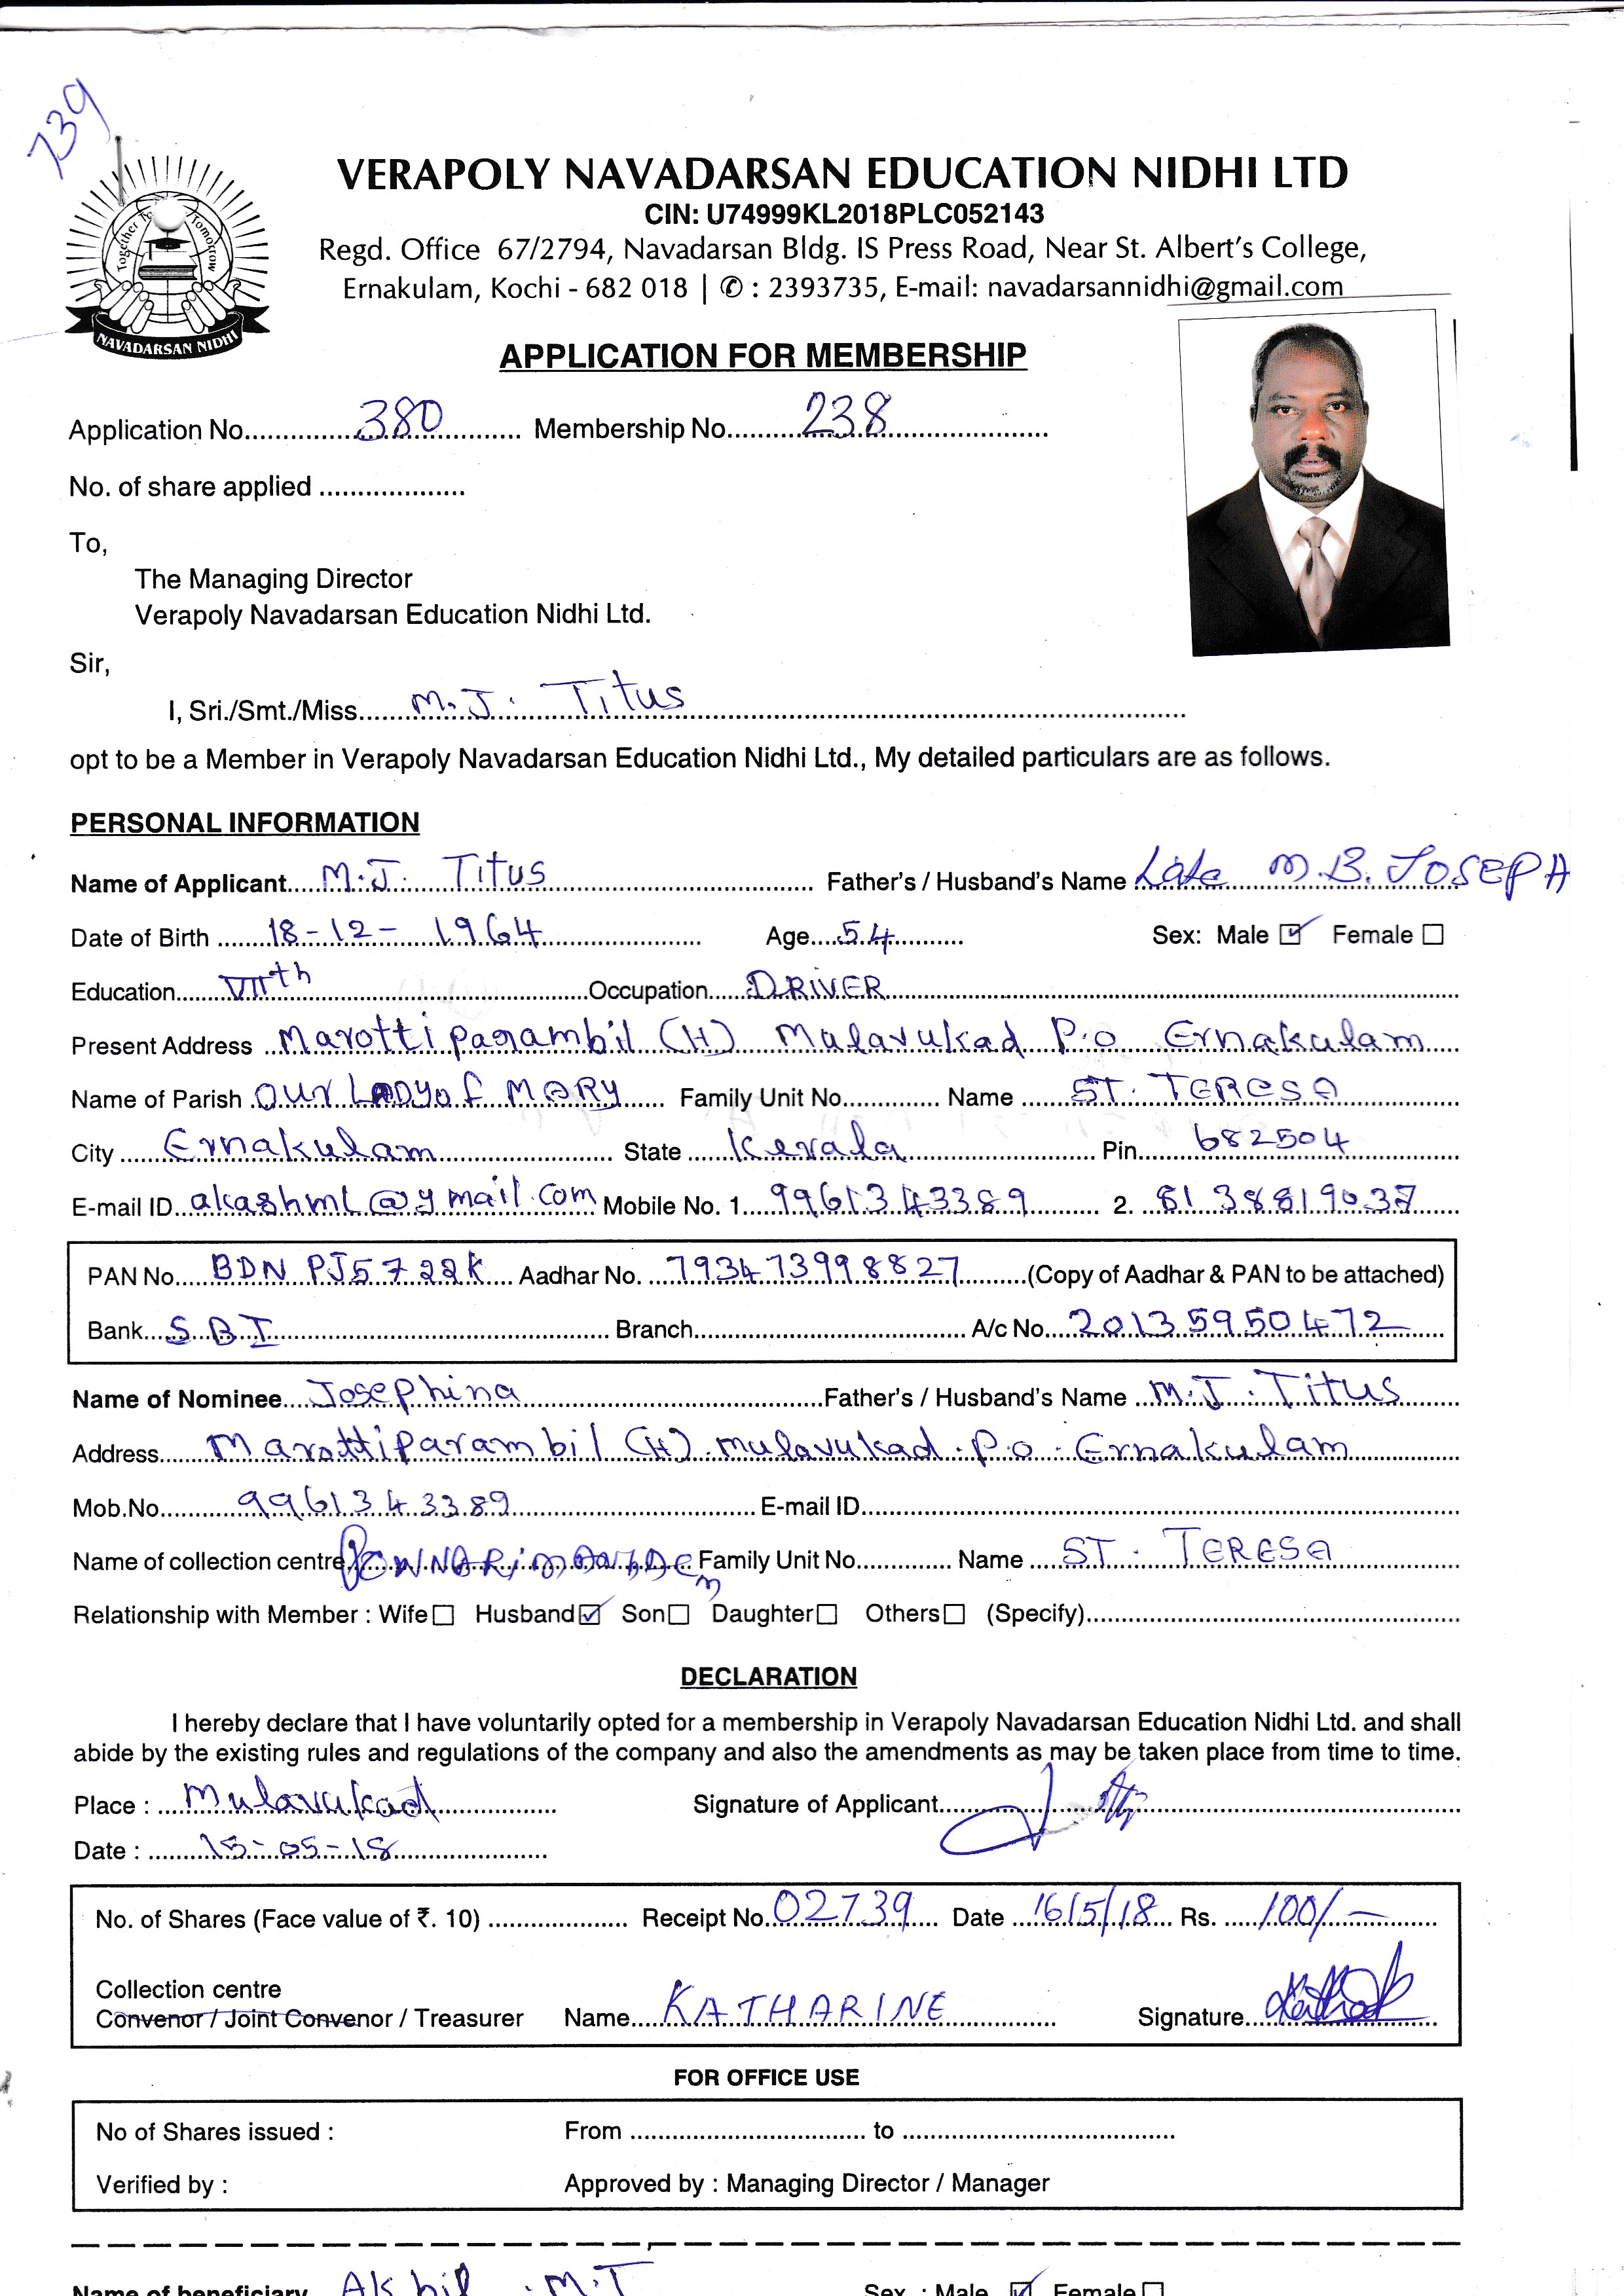 739
Together To Tomorrow
NAVADARSAN NIDHI
VERAPOLY NAVADARSAN EDUCATION NIDHI LTD
CIN: U74999KL2018PLC052143
Regd. Office 67/2794, Navadarsan Bldg. IS Press Road, Near St. Albert's College,
Ernakulam, Kochi - 682 018 | ✆ : 2393735, E-mail: navadarsannidhi@gmail.com
APPLICATION FOR MEMBERSHIP
Application No. 380 Membership No. 238
No. of share applied
To,
The Managing Director
Verapoly Navadarsan Education Nidhi Ltd.
Sir,
I, Sri./Smt./Miss M.J. Titus
opt to be a Member in Verapoly Navadarsan Education Nidhi Ltd., My detailed particulars are as follows.
PERSONAL INFORMATION
Name of Applicant M.J. Titus Father's / Husband's Name Late M.B. JOSEPH
Date of Birth 18-12-1964 Age 54 Sex: Male ☑ Female ☐
Education VIIth Occupation DRIVER
Present Address Marottiparambil (H) Mulavukad P.o Ernakulam
Name of Parish OUr LADYof MARY Family Unit No. Name ST. TERESA
City Ernakulam State Kerala Pin 682504
E-mail ID akashml@ymail.com Mobile No. 1 9961343389 2. 8138819037
PAN No. BDN PJ5722K Aadhar No. 793473998827 (Copy of Aadhar & PAN to be attached)
Bank SBI Branch A/c No. 20135950472
Name of Nominee Josephina Father's / Husband's Name M.J. Titus
Address Marottiparambil (H). mulavukad. P.o. Ernakulam
Mob.No. 9961343389 E-mail ID
Name of collection centre Family Unit No. Name ST. TERESA
Relationship with Member : Wife ☐ Husband ☑ Son ☐ Daughter ☐ Others ☐ (Specify)
DECLARATION
I hereby declare that I have voluntarily opted for a membership in Verapoly Navadarsan Education Nidhi Ltd. and shall
abide by the existing rules and regulations of the company and also the amendments as may be taken place from time to time.
Place : Mulavukad Signature of Applicant
Date : 15-05-18
No. of Shares (Face value of ₹. 10) Receipt No. 02739 Date 16/5/18 Rs. 100/-
Collection centre
Convenor / Joint Convenor / Treasurer Name KATHARINE Signature
FOR OFFICE USE
No of Shares issued : From to
Verified by : Approved by : Managing Director / Manager
Name of beneficiary Akhil .M.T Sex : Male ☑ Female ☐